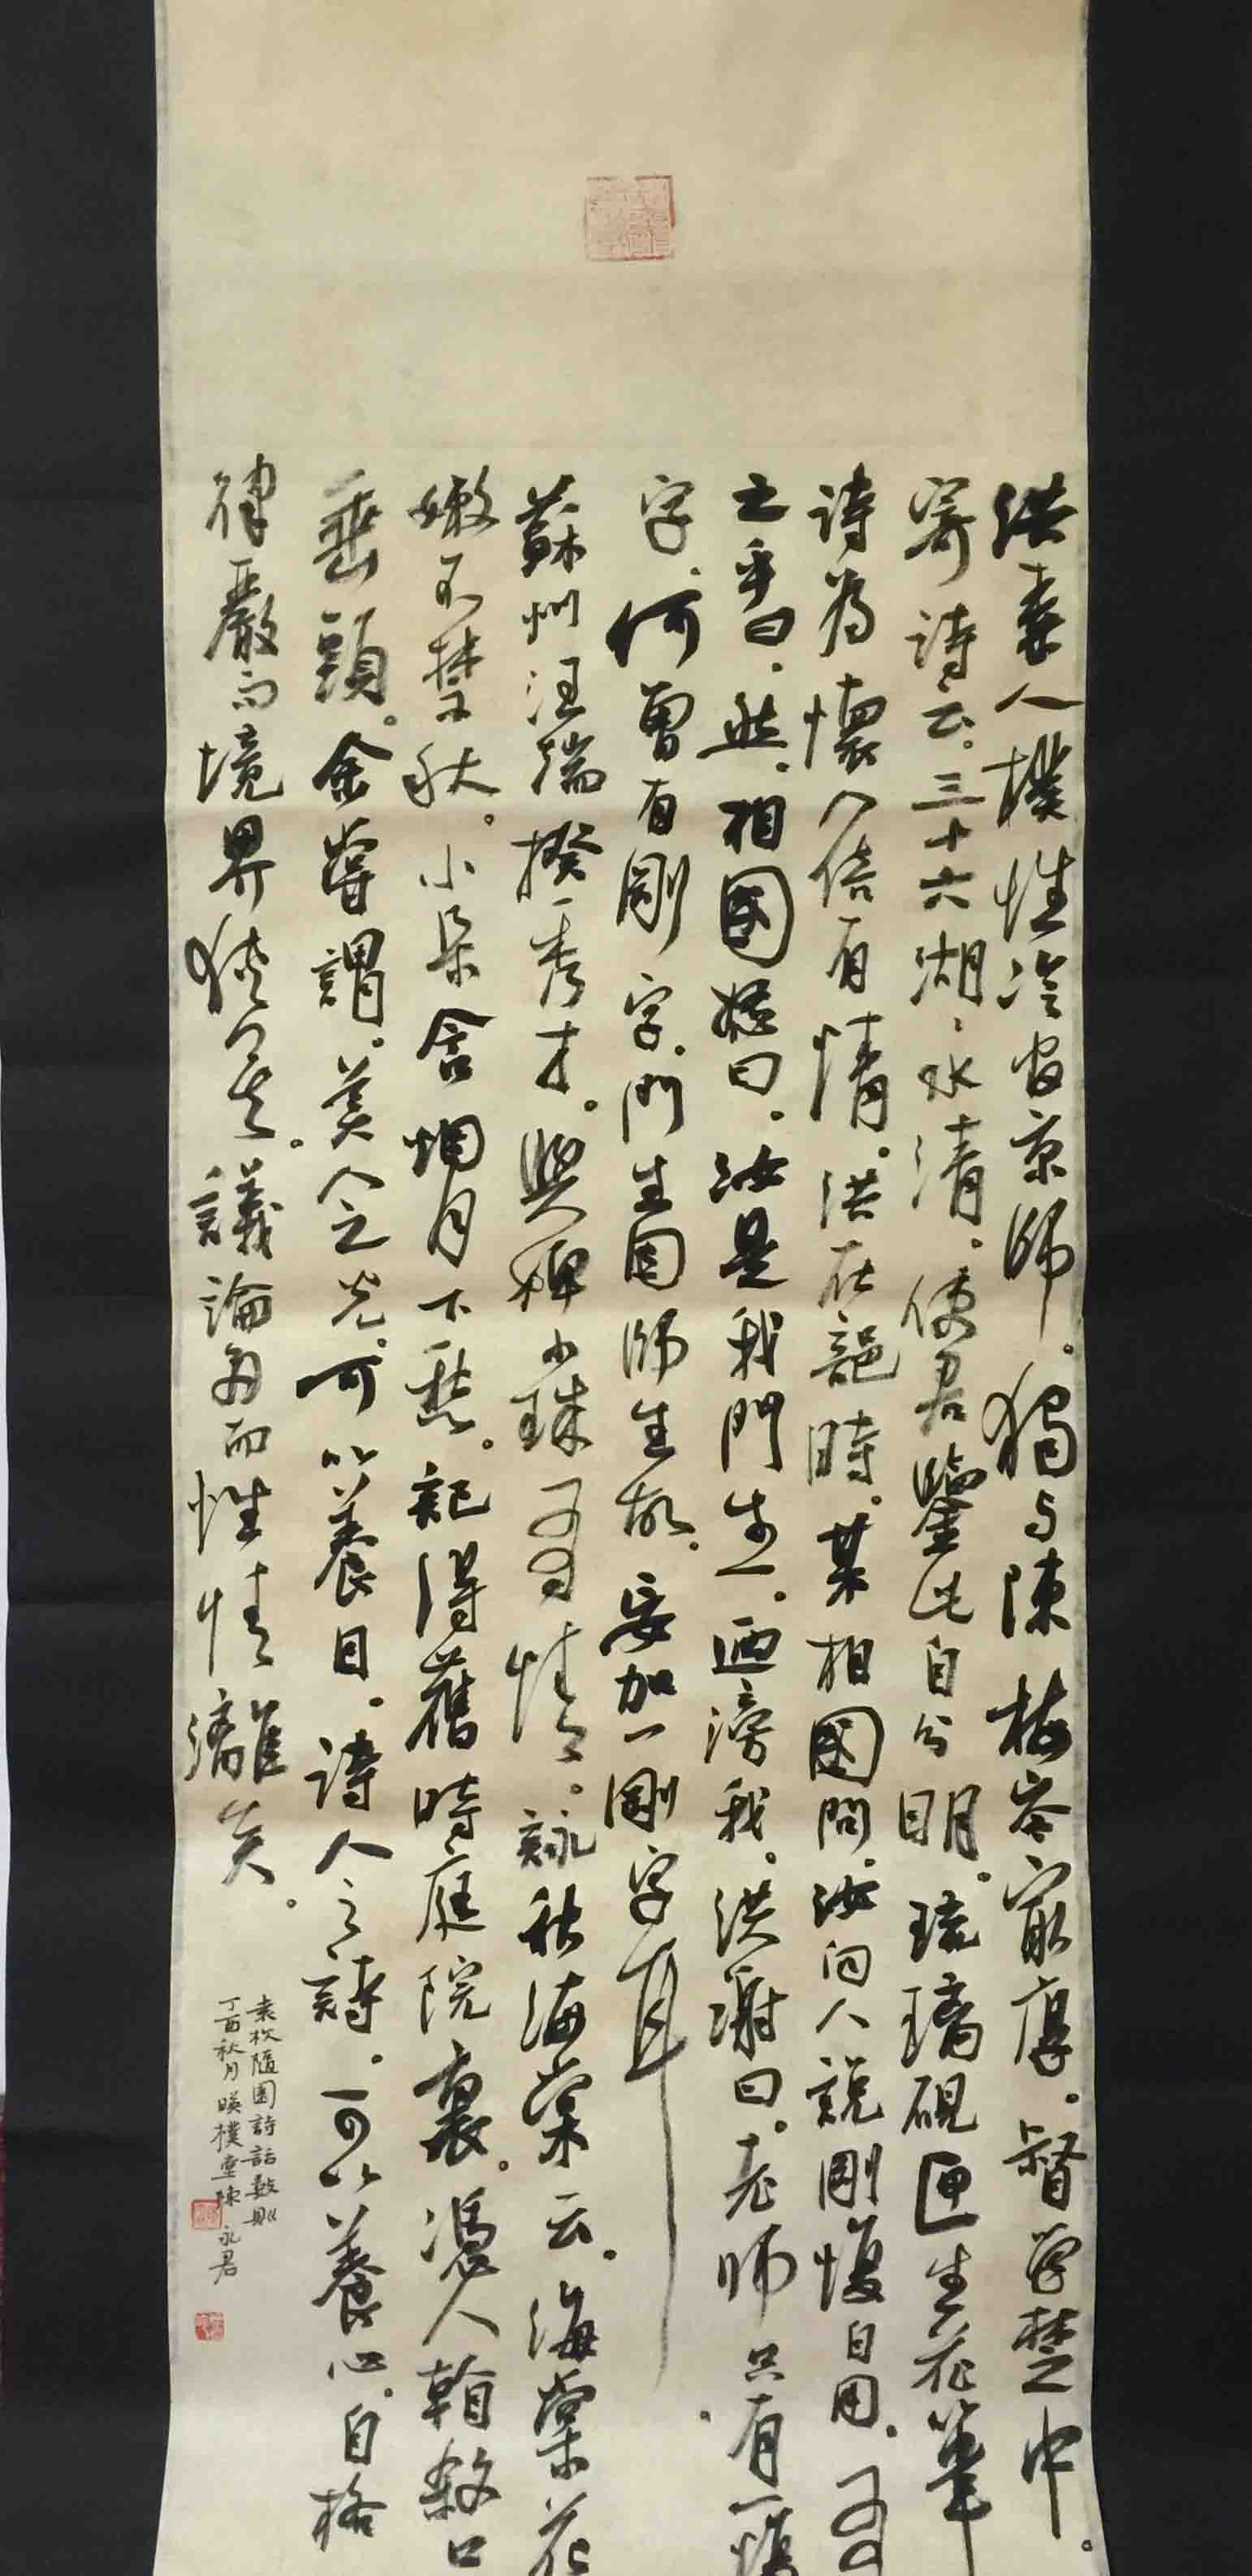 洪素人樸性冷官京師。獨与陳梅岑最厚。督学楚中。
寄詩云。三十六湖湖水清。使君鑒此自分明。琉璃硯匣生花筆
詩为懷人倍有情。洪在部時。某相國問。汝向人說剛愎自用。有
之乎曰。然。相國怒曰。汝是我門生。迺謗我。洪謝曰。老师只有一愎
字。何曾有剛字。門生因师生故。妄加一剛字耳。
蘇州汪端揆秀才。與稗小珠有情。詠秋海棠云。海棠花
嫩不禁秋。小朵含烟月下愁。記得舊時庭院裏。憑人韓
垂頭。余嘗謂。美人之光。可以養目。詩人之詩。可以養心。自格
律嚴而境界狹矣。議論多而性情漓矣。
袁枚隨園詩話數則
丁酉秋月暎樸堂陳永君